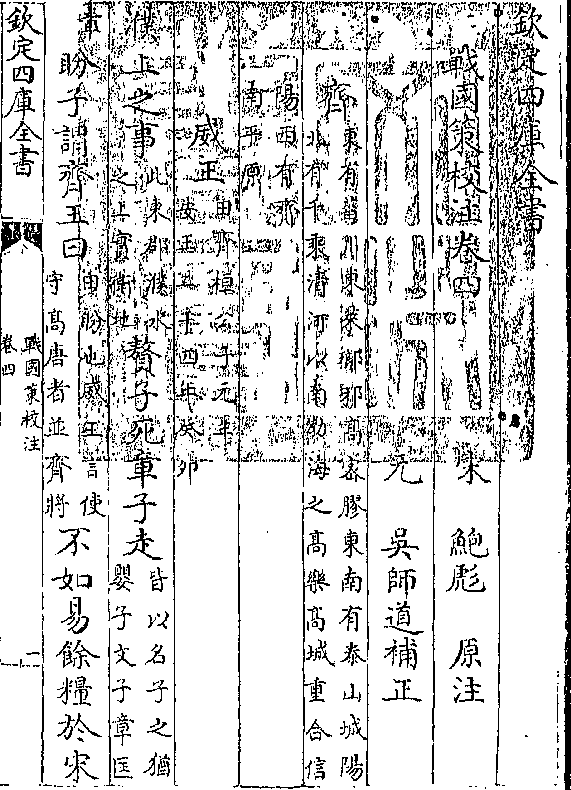 欽定四庫全書
戰國策校注卷四
宋 鮑彪 原注
元 吳師道補正
齊
東有菑川東萊琅邪高密膠東南有泰山城陽
北有千乘清河以南勃海之高樂高城重合信
陽西有濟
南平原
威王
田齊桓公子元年
安王二十四年癸卯
濮上之事
此東郡濮水
之上實衛地
贅子死章子走
皆以名子之猶
嬰子文子章匡
章
盼子謂齊王曰
田盼也威王言使
守高唐者並齊將
不如易餘糧於宋
欽定四庫全書
戰國策校注
卷四
一